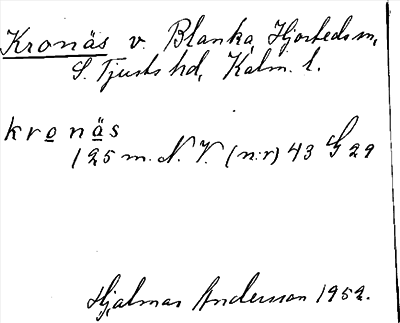 Kronäs v. Blanka, Hjorteds sn,
S. Tjusts hd, Kalm. l.
kronäs
125 m. N. V. (n:r) 43 G 29
Hjalmar Andersson 1952.